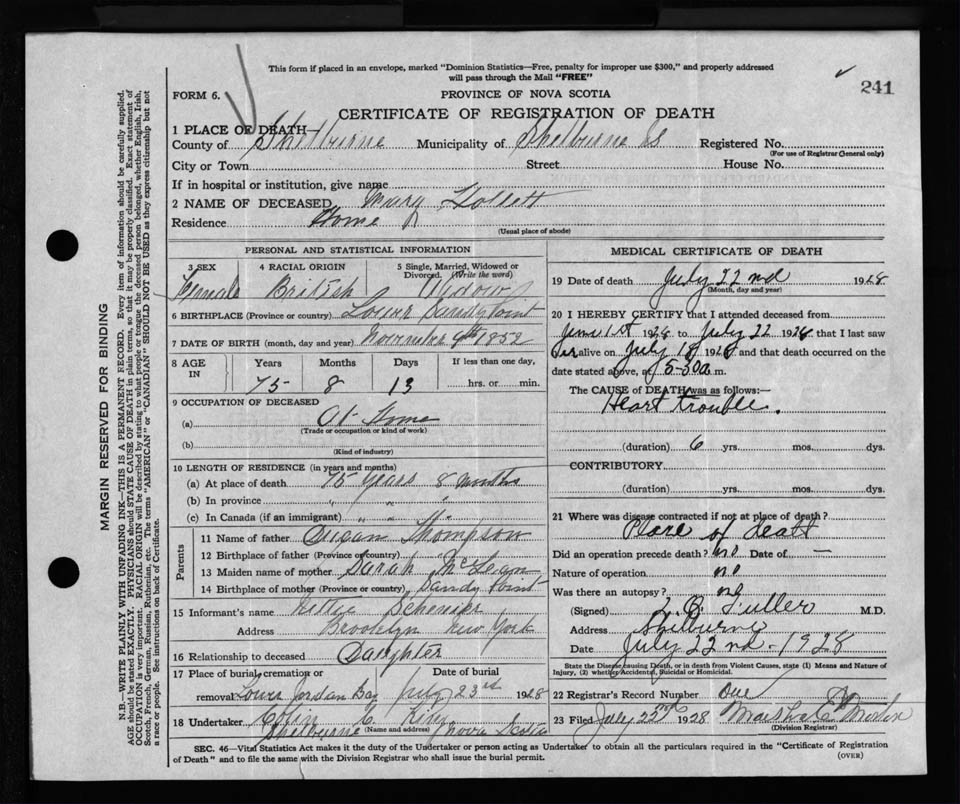 This form if placed in an envelope, marked "Dominion Statistics—Free, penalty for improper use $300," and properly addressed
will pass through the Mail "FREE"
FORM 6.
PROVINCE OF NOVA SCOTIA
241
CERTIFICATE OF REGISTRATION OF DEATH
1 PLACE OF DEATH—
County of Shelburne Municipality of Shelburne Registered No.
(For use of Registrar General only)
City or Town Street House No.
If in hospital or institution, give name
2 NAME OF DECEASED Mary
Residence Home
(Usual place of abode)
MARGIN RESERVED FOR BINDING
N.B.—WRITE PLAINLY WITH UNFADING INK—THIS IS A PERMANENT RECORD. Every item of information should be carefully supplied.
AGE should be stated EXACTLY. PHYSICIANS should STATE CAUSE OF DEATH in plain terms, so that it may be properly classified. Exact statement of
OCCUPATION is very important. RACIAL ORIGIN will be described by stating to what people or tongue the deceased person belonged, whether English, Irish,
Scotch, French, German, Russian, Ruthenian, etc. The terms "AMERICAN" or "CANADIAN" SHOULD NOT BE USED as they express citizenship but not
a race or people. See instructions on back of Certificate.
PERSONAL AND STATISTICAL INFORMATION
3 SEX 4 RACIAL ORIGIN 5 Single, Married, Widowed or
Divorced. (Write the word)
Female British Widow
6 BIRTHPLACE (Province or country) Lower Sandy Point
7 DATE OF BIRTH (month, day and year) November 9th 1852
8 AGE IN Years Months Days If less than one day,
75 8 13 hrs. or min.
9 OCCUPATION OF DECEASED
(a) At Home
(Trade or occupation or kind of work)
(b)
(Kind of industry)
10 LENGTH OF RESIDENCE (in years and months)
(a) At place of death 75 years 8 months
(b) In province " " "
(c) In Canada (if an immigrant) " " "
Parents
11 Name of father Thompson
12 Birthplace of father (Province or country)
13 Maiden name of mother Sarah McLean
14 Birthplace of mother (Province or country) Sandy Point
15 Informant's name
Address Brooklyn New York
16 Relationship to deceased Daughter
17 Place of burial, cremation or Date of burial
removal Lower Jordan Bay July 23rd 1928
18 Undertaker C. King
Shelburne (Name and address) Nova Scotia
MEDICAL CERTIFICATE OF DEATH
19 Date of death July 22nd 1928
(Month, day and year)
20 I HEREBY CERTIFY that I attended deceased from
June 1st 1928 to July 22 1928 that I last saw
her alive on July 18 1928 and that death occurred on the
date stated above, at 5-30 a m.
The CAUSE of DEATH was as follows:—
Heart trouble.
(duration) 6 yrs. mos. dys.
CONTRIBUTORY
(duration) yrs. mos. dys.
21 Where was disease contracted if not at place of death?
Place of death
Did an operation precede death? no Date of —
Nature of operation no
Was there an autopsy? no
(Signed) Fuller M.D.
Address Shelburne
Date July 22nd - 1928
State the Disease causing Death, or in death from Violent Causes, state (1) Means and Nature of
Injury, (2) whether Accidental, Suicidal or Homicidal.
22 Registrar's Record Number One
23 Filed July 22nd 1928 Martha E.
(Division Registrar)
SEC. 46—Vital Statistics Act makes it the duty of the Undertaker or person acting as Undertaker to obtain all the particulars required in the "Certificate of Registration
of Death" and to file the same with the Division Registrar who shall issue the burial permit.
(OVER)